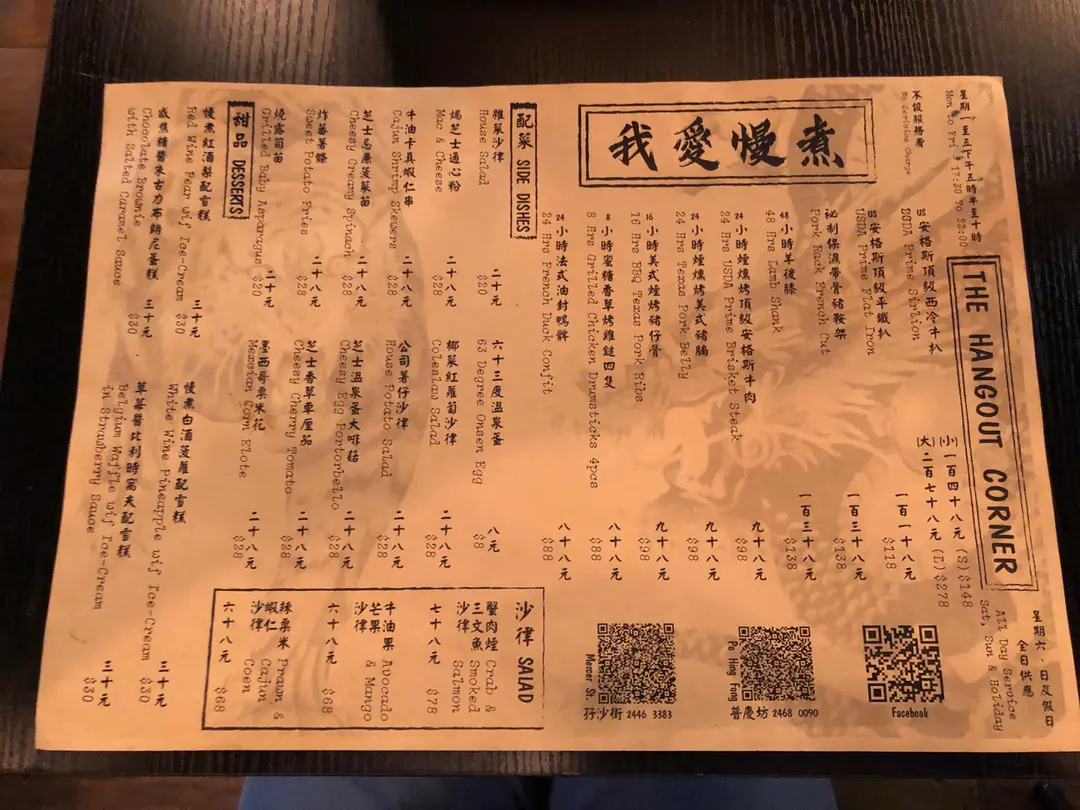 THE HANGOUT CORNER
星期一至五下午五時半至十時
Mon to Fri 17:30 To 22:00
不設服務費
No Serivice Charge
星期六、日及假日
全日供應
All Day Service
Sat, Sun & Holiday
我愛慢煮
US 安格斯頂級西冷牛扒
USDA Prime Sirlion
小 一百四十八元 (S) $148
大 二百七十八元 (L) $278
US 安格斯頂級平鐵扒
USDA Prime Flat Iron
一百一十八元
$118
秘制保濕帶骨豬鞍架
Pork Rack French Cut
一百三十八元
$138
48 小時羊後膝
48 Hrs Lamb Shank
一百三十八元
$138
24 小時煙燻烤頂級安格斯牛肉
24 Hrs USDA Prime Brisket Steak
九十八元
$98
24 小時煙燻烤美式豬腩
24 Hrs Texas Pork Belly
九十八元
$98
16 小時美式煙烤豬仔骨
16 Hrs BBQ Texas Pork Ribs
九十八元
$98
8 小時蜜糖香草烤雞鎚四隻
8 Hrs Grilled Chicken Drumsticks 4pcs
八十八元
$88
24 小時法式油封鴨髀
24 Hrs French Duck Confit
八十八元
$88
Facebook
Po Hing Fong
普慶坊 2468 0090
Mercer St.
孖沙街 2446 3383
配菜 SIDE DISHES
雜菜沙律
House Salad
二十元
$20
六十三度溫泉蛋
63 Degree Onsen Egg
八元
$8
焗芝士通心粉
Mac & Cheese
二十八元
$28
椰菜紅蘿蔔沙律
Coleslaw Salad
二十八元
$28
牛油卡真蝦仁串
Cajun Shrimp Skewers
二十八元
$28
公司薯仔沙律
House Potato Salad
二十八元
$28
芝士忌廉菠菜苗
Cheesy Creamy Spinach
二十八元
$28
芝士溫泉蛋大啡菇
Cheesy Egg Portorbello
二十八元
$28
炸蕃薯條
Sweet Potato Fries
二十八元
$28
芝士香草車厘茄
Cheesy Cherry Tomato
二十八元
$28
燒露筍苗
Grilled Baby Asparagus
二十元
$20
墨西哥粟米花
Mexcian Corn Elote
二十八元
$28
沙律 SALAD
蟹肉煙三文魚沙律
Crab & Smoked Salmon
七十八元
$78
牛油果芒果沙律
Avocado & Mango
六十八元
$68
辣粟米蝦仁沙律
Prawn & Cajun Coen
六十八元
$68
甜品 DESSERTS
慢煮紅酒梨配雪糕
Red Wine Pear wif Ice-Cream
三十元
$30
慢煮白酒菠蘿配雪糕
White Wine Pineapple wif Ice-Cream
三十元
$30
咸焦糖醬朱古力布朗尼蛋糕
Chocolate Brownie
with Salted Caramel Sauce
三十元
$30
草莓醬比利時窩夫配雪糕
Belgium Waffle wif Ice-Cream
in Strawberry Sauce
三十元
$30